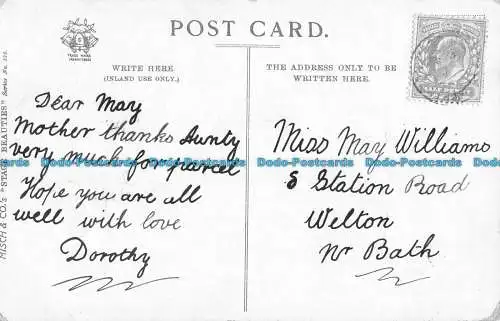 POST CARD.
TRADE MARK
WRITE HERE.
(INLAND USE ONLY.)
THE ADDRESS ONLY TO BE
WRITTEN HERE.
MISCH & CO.'S "STAGE BEAUTIES" Series No.
Dear May
Mother thanks Aunty
very much for parcel
Hope you are all
well with love
Dorothy
Miss May Williams
Station Road
Welton
Nr Bath
Dodo-Postcards Dodo-Postcards Dodo-Postcards Dodo-Postcards
Dodo-Postcards Dodo-Postcards Dodo-Postcards Dodo-Postcards